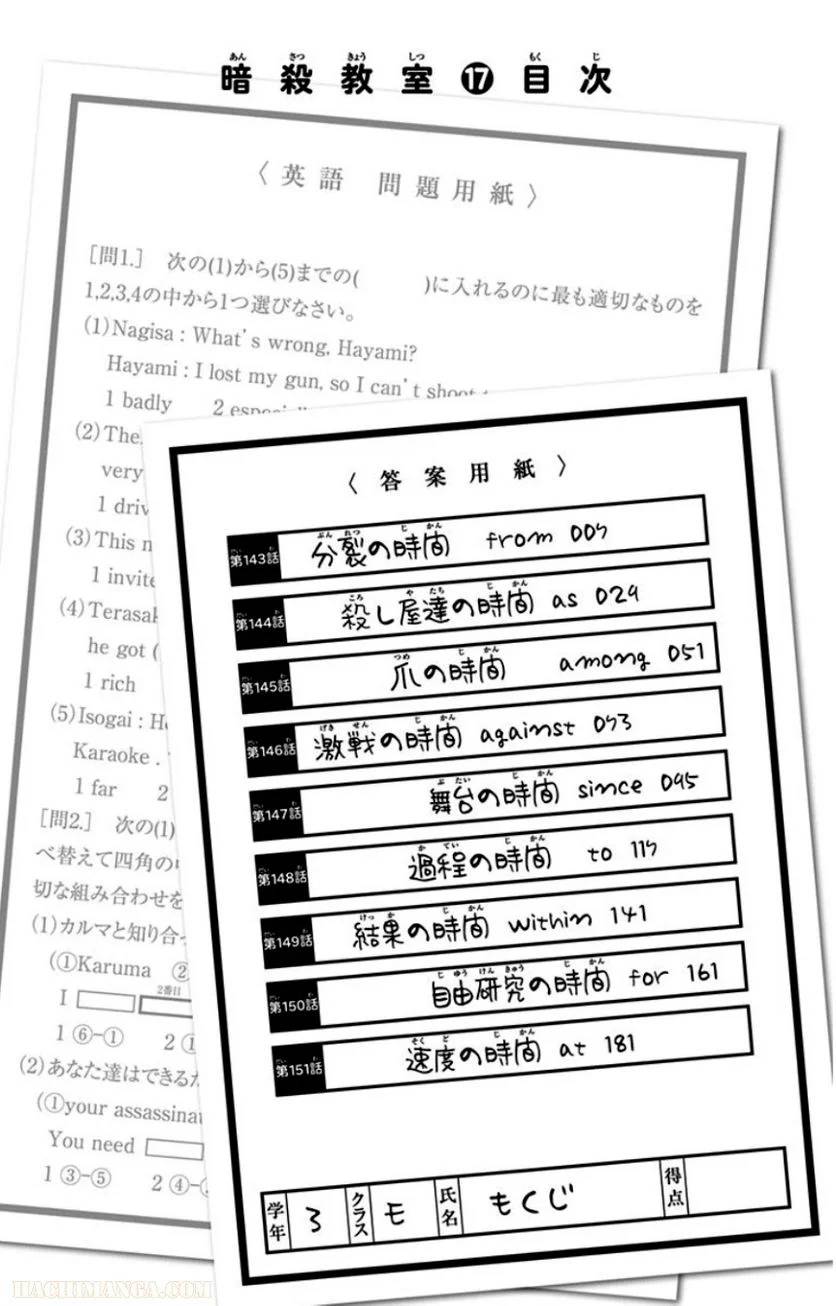 暗殺教室⑰目次
〈英語 問題用紙〉
[問1.] 次の(1)から(5)までの( )に入れるのに最も適切なものを
1,2,3,4の中から1つ選びなさい。
(1)Nagisa : What's wrong, Hayami?
Hayami : I lost my gun, so I can't shoot
1 badly 2
(2)The
very
1
(3)This
1 invite
(4)
he got (
1 rich
(5)Isogai :
Karaoke .
1 far 2
[問2.] 次の(1)
べ替えて四角の
切な組み合わせを
(1)カルマと知り合
(①Karuma ②
I 2番目
1 ⑥-① 2 ①
(2)あなた達はできるだ
(①your
You need
1 ③-⑤ 2 ④-
〈答案用紙〉
第143話 分裂の時間 from 007
第144話 殺し屋達の時間 as 029
第145話 爪の時間 among 051
第146話 激戦の時間 against 073
第147話 舞台の時間 since 095
第148話 過程の時間 to 117
第149話 結果の時間 within 141
第150話 自由研究の時間 for 161
第151話 速度の時間 at 181
学年 3 クラス モ 氏名 もくじ 得点
HACHIMANGA.COM